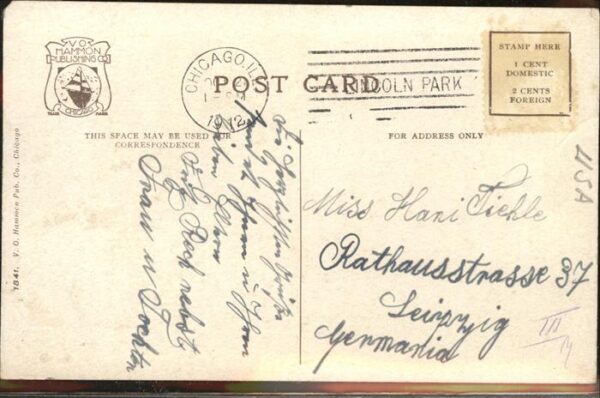 V.O.
HAMMON
PUBLISHING CO.
TRADE MARK
CHICAGO
CHICAGO, ILL
1912
LINCOLN PARK
POST CARD
STAMP HERE
1 CENT
DOMESTIC
2 CENTS
FOREIGN
THIS SPACE MAY BE USED FOR
CORRESPONDENCE
FOR ADDRESS ONLY
1841. V. O. Hammon Pub. Co., Chicago
Die herzlichsten Grüße
Ihnen u Ihren
lieben Eltern
nebst
Frau u Tochter
USA
Miss Hani
Rathausstrasse 37
Leipzig
Germania
III